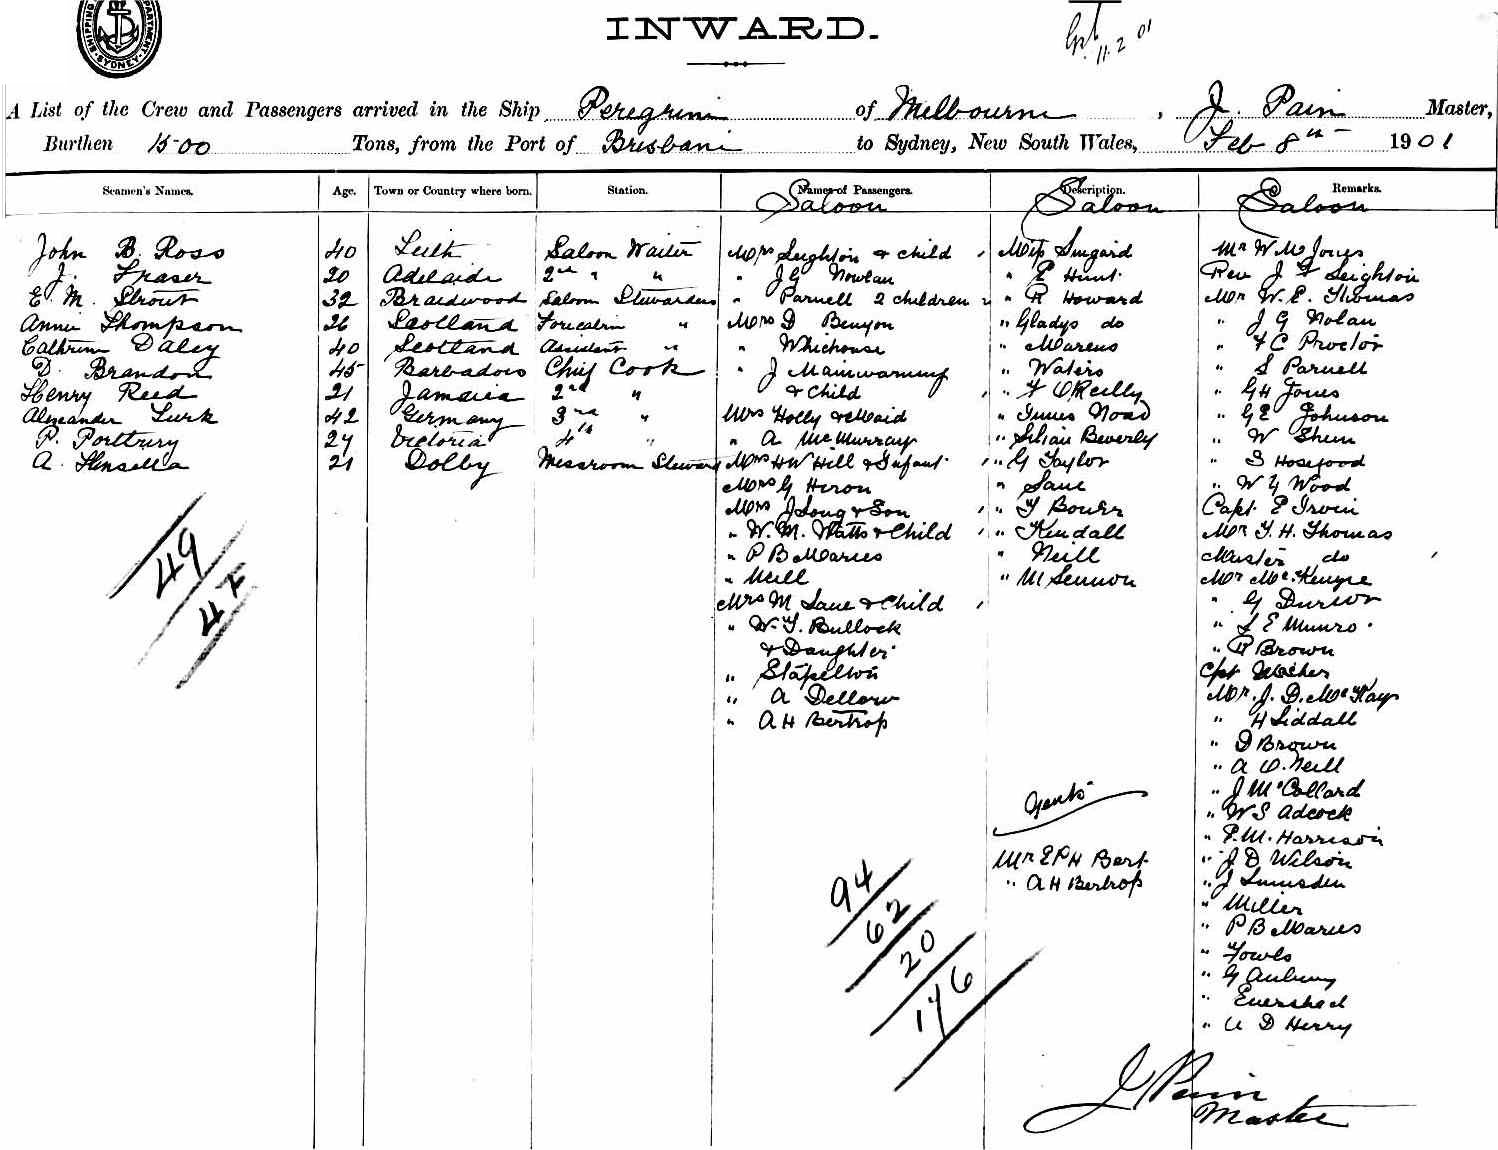 SHIPPING DEPARTMENT SYDNEY
INWARD.
11.2 01
A List of the Crew and Passengers arrived in the Ship Peregrine of Melbourne, J. Pain Master,
Burthen 1500 Tons, from the Port of Brisbane to Sydney, New South Wales, Feb 8th 1901
Seamen's Names. Age. Town or Country where born. Station. Names of Passengers. Description. Remarks.
Saloon Saloon Saloon
John B. Ross 40 Leith Saloon Waiter
J. Fraser 20 Adelaide 2nd " "
E. M. Strout 32 Braidwood Saloon Stewardess
Annie Thompson 26 Scotland Forecabin "
Cathrine Daley 40 Scotland Assistant "
D. Brandon 45 Barbados Chief Cook
Henry Reed 21 Jamaica 2nd "
Alexander Lurk 42 Germany 3rd "
P. Portbury 24 Victoria 4th "
A. Hensella 21 Dolby Messroom Steward
49
47
Mrs Leighton & child
" J G Nowlan
" Parnell 2 children 2
Mrs D Benyon
" Whichouse
" J Mainwarning
& Child
Mrs Holly & Maid
" A McMurray
Mrs H W Hill & Infant
Mrs G Heron
Mrs J Long & Son
" W. M. Watts & Child
" P B Maries
" Neill
Mrs M Lane & Child
" W. T. Bullock
& Daughter
" Stapelton
" A Dellow
" A H Bertrop
94
62
20
176
Miss Singard
" E Hunt
" R Howard
" Gladys do
" Marcus
" Waters
" F O'Reilly
" Innes Noad
" Lilian Beverly
" G Taylor
" Lane
" T Bower
" Kendall
" Neill
" M Lennon
Gents
Mr E P H Bert
" A H Bertrop
Mr W M Jones
Rev J F Leighton
Mr W. E. Thomas
" J G Nolan
" F C Proctor
" S Parnell
" G H Jones
" G E Johnson
" W Shum
" S Hosegood
" W G Wood
Capt E Irwin
Mr T. H. Thomas
Master do
Mr McKenzie
" G
" L E Munro
" R Brown
Cpt
Mr. J. D. McKay
" H Siddall
" D Brown
" A O.Neill
" J McCollard
" W S Adcock
" P. M. Harrison
" J D Wilson
" J Lumsden
" Miller
" P B Maries
" Fowls
" G
" Evershed
" A D Herry
J Pain
Master